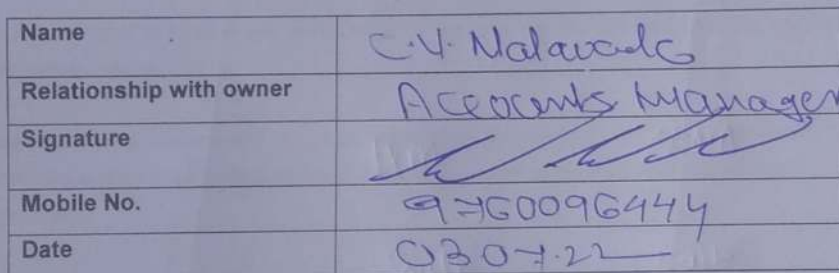 Name C.V. Malavade
Relationship with owner Accounts Manager
Signature
Mobile No. 9760096444
Date 0307.22